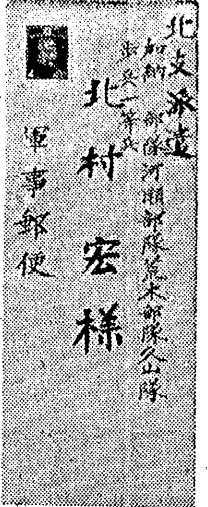 北支派遣
加納部隊河瀬部隊荒木部隊久山隊
歩兵一等兵
北村宏様
軍事郵便